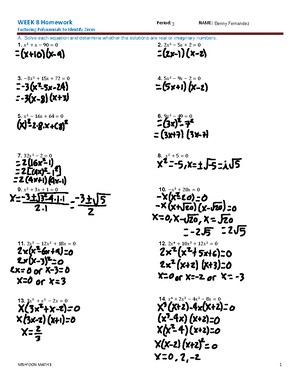 WEEK 8 Homework
Period: 3 NAME: Danny Fernandez
Factoring Polynomials to Identify Zeros
A. Solve each equation and determine whether the solutions are real or imaginary numbers.
1. x² + x − 90 = 0
=(x+10)(x-9)
2. 2x² − 5x + 2 = 0
=(2x-1)(x-2)
3. −3x² + 15x + 72 = 0
=-3(x²-5x-24)
=-3(x-8)(x+3)
4. 5x² − 9x − 2 = 0
=(5x+1)(x-2)
5. x² − 16x + 64 = 0
(x)²-2·8·x+(8)²
6. 9x² − 49 = 0
=(3x)²-7²
=(3x+7)(3x-7)
7. 32x² − 2 = 0
=2(16x²-1)
=2(4x+1)(4x-1)
8. x² + 5 = 0
x²=-5, x=±√-5=i√5
9. x² + 3x + 1 = 0
x=-3±√3²-4·1·1 / 2·1 = -3±√5 / 2
10. −x³ + 20x = 0
-x(x²-20)=0
-x(x+√20)(x-√20)=0
x=0, x=-√20, x=√20
=-2√5 =2√5
11. 2x³ − 12x² + 18x = 0
2x(x²-6x+9)=0
2x(x-3)²=0
2x=0 or x-3=0
x=0 or x=3
12. 2x⁴ + 10x³ + 12x² = 0
2x²(x²+5x+6)=0
2x²(x+2)(x+3)=0
x=0 or x=-2 or x=-3
x(3x²+x-2)=0
x(3x-2)(x+1)=0
x=2/3
14. x⁴ + 2x³ − 4x² − 8x = 0
x³(x+2)-4x(x+2)=0
(x³-4x)(x+2)=0
x(x²-4)(x+2)=0
x(x-2)(x+2)²=0
x=0, 2, -2
MSHYOON MATH3
1